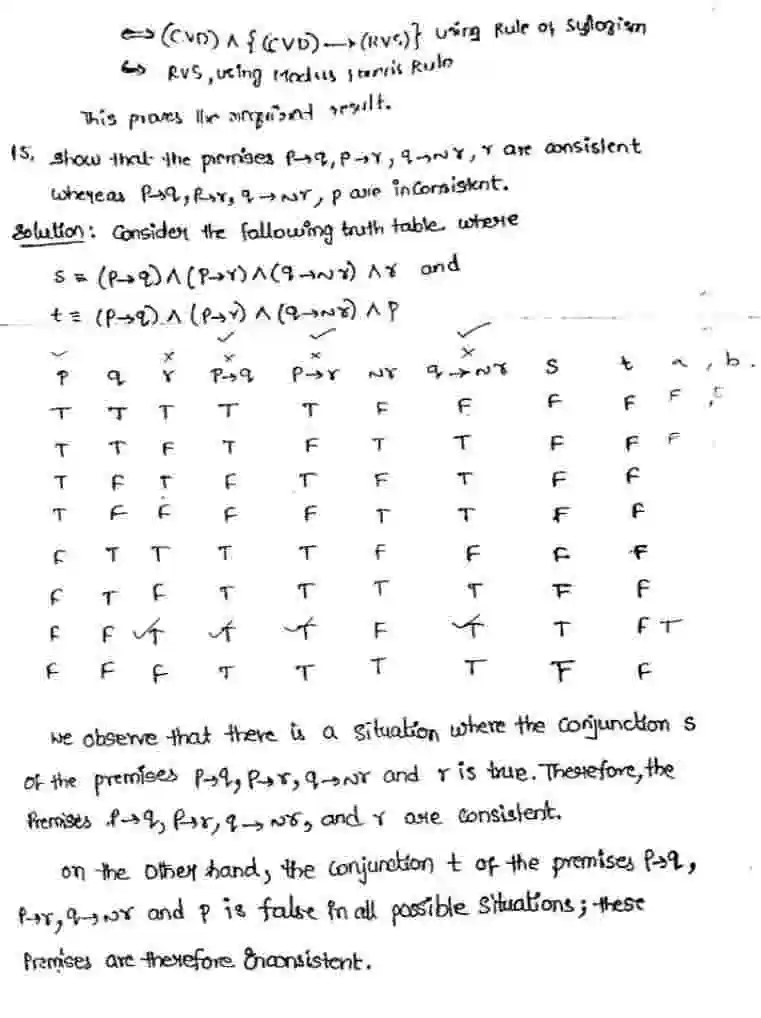 ⟺ (CVD) ∧ {(CVD) → (RVS)} using Rule of Syllogism
⟺ RVS, using Modus Rule
This proves the result.
15. Show that the premises P→q, P→r, q→Nr, r are consistent
whereas P→q, P→r, q→Nr, p are inconsistent.
Solution: Consider the following truth table. where
s ≡ (P→q) ∧ (P→r) ∧ (q→Nr) ∧ r and
t ≡ (P→q) ∧ (P→r) ∧ (q→Nr) ∧ P
✓ ✓ ✓
✓ × × × ×
P q r P→q P→r Nr q→Nr S t a, b.
T T T T T F F F F F
T T F T F T T F F F
T F T F T F T F F
T F F F F T T F F
F T T T T F F F F
F T F T T T T F F
F F ✓T ✓T ✓T F ✓T T F T
F F F T T T T F F
We observe that there is a situation where the conjunction s
of the premises P→q, P→r, q→Nr and r is true. Therefore, the
Premises P→q, P→r, q→Nr, and r are consistent.
on the other hand, the conjunction t of the premises P→q,
P→r, q→Nr and p is false in all possible situations; these
Premises are therefore inconsistent.